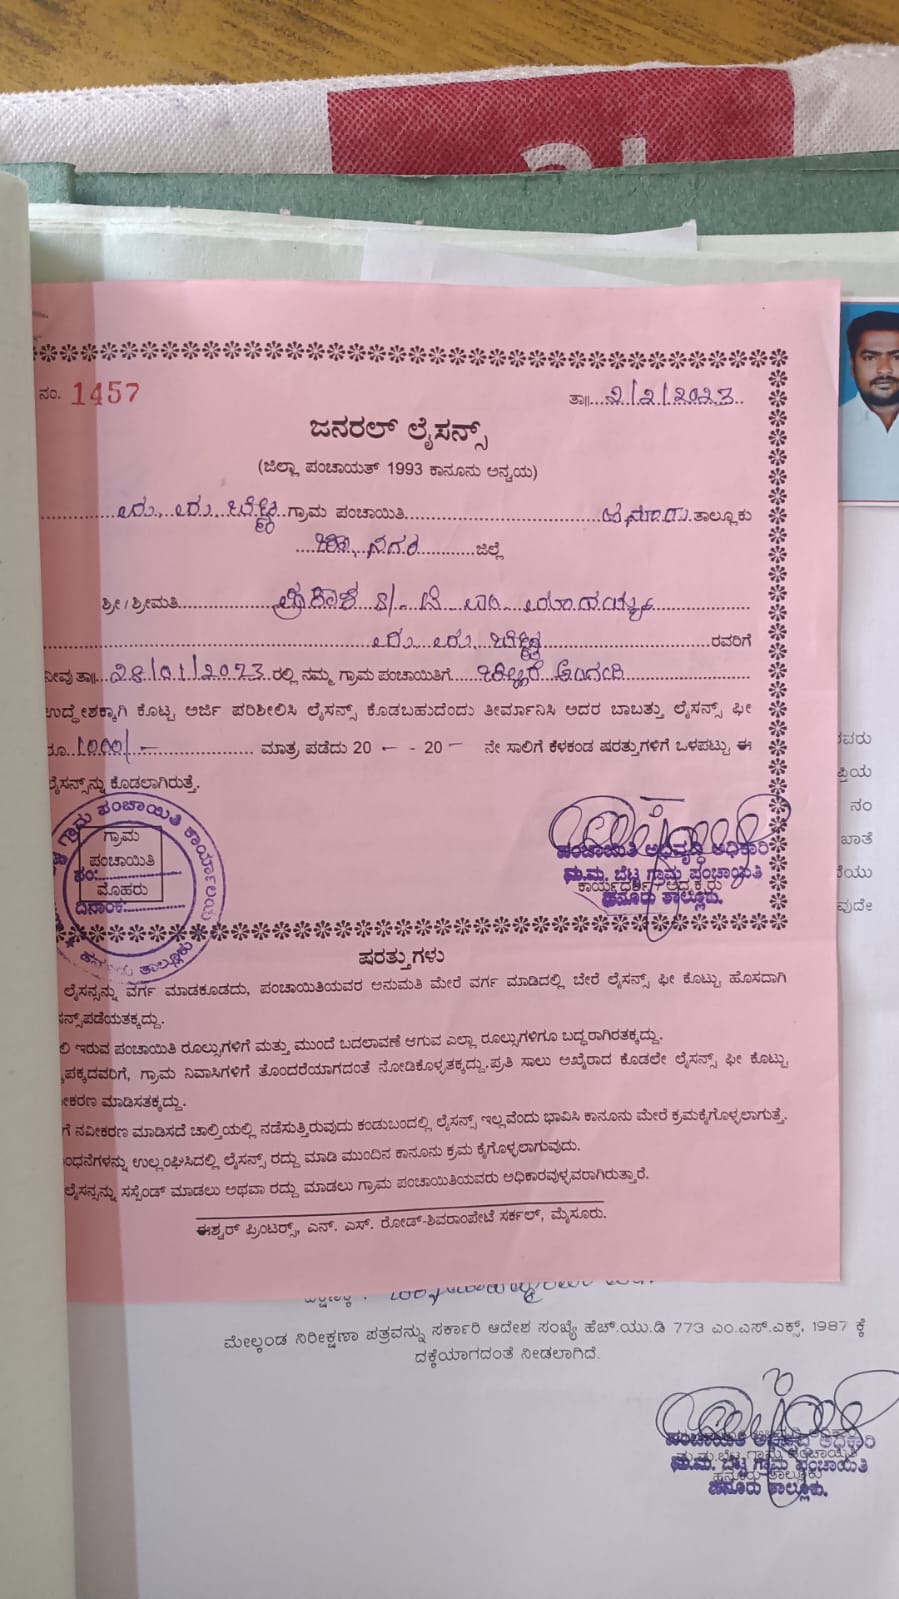 ನಂ. 1457
ತಾ॥...2/2/2023..
ಜನರಲ್ ಲೈಸನ್ಸ್
(ಜಿಲ್ಲಾ ಪಂಚಾಯತ್ 1993 ಕಾನೂನು ಅನ್ವಯ)
ಮ. ಮ. ಬೆಟ್ಟ ಗ್ರಾಮ ಪಂಚಾಯಿತಿ ಹನೂರು ತಾಲ್ಲೂಕು
ಚಾ. ನಗರ ಜಿಲ್ಲೆ
ಶ್ರೀ / ಶ್ರೀಮತಿ
ಮ. ಮ. ಬೆಟ್ಟ ರವರಿಗೆ
ನೀವು ತಾ॥ 28/01/2023 ರಲ್ಲಿ ನಮ್ಮ ಗ್ರಾಮ ಪಂಚಾಯಿತಿಗೆ ಚಿಲ್ಲರೆ ಅಂಗಡಿ
ಉದ್ಧೇಶಕ್ಕಾಗಿ ಕೊಟ್ಟ ಅರ್ಜಿ ಪರಿಶೀಲಿಸಿ ಲೈಸನ್ಸ್ ಕೊಡಬಹುದೆಂದು ತೀರ್ಮಾನಿಸಿ ಅದರ ಬಾಬತ್ತು ಲೈಸನ್ಸ್ ಫೀ
ರೂ. 1000/- ಮಾತ್ರ ಪಡೆದು 20 - - 20 - ನೇ ಸಾಲಿಗೆ ಕೆಳಕಂಡ ಷರತ್ತುಗಳಿಗೆ ಒಳಪಟ್ಟು ಈ
ಲೈಸನ್ಸ್‌ನ್ನು ಕೊಡಲಾಗಿರುತ್ತೆ.
ಗ್ರಾಮ ಪಂಚಾಯಿತಿ ಕಾರ್ಯಾಲಯ
ಗ್ರಾಮ
ಪಂಚಾಯಿತಿ
ಮೊಹರು
ದಿನಾಂಕ:
ತಾಲ್ಲೂಕು
ಪಂಚಾಯಿತಿ ಅಭಿವೃದ್ಧಿ ಅಧಿಕಾರಿ
ಮ.ಮ. ಬೆಟ್ಟ ಗ್ರಾಮ ಪಂಚಾಯಿತಿ
ಕಾರ್ಯದರ್ಶಿ / ಅಧ್ಯಕ್ಷರು
ಹನೂರು ತಾಲ್ಲೂಕು.
ಷರತ್ತುಗಳು
ಲೈಸನ್ಸನ್ನು ವರ್ಗ ಮಾಡಕೂಡದು, ಪಂಚಾಯಿತಿಯವರ ಅನುಮತಿ ಮೇರೆ ವರ್ಗ ಮಾಡಿದಲ್ಲಿ ಬೇರೆ ಲೈಸನ್ಸ್ ಫೀ ಕೊಟ್ಟು ಹೊಸದಾಗಿ
ನ್ಸ್‌ಪಡೆಯತಕ್ಕದ್ದು.
ಲಿ ಇರುವ ಪಂಚಾಯಿತಿ ರೂಲ್ಸುಗಳಿಗೆ ಮತ್ತು ಮುಂದೆ ಬದಲಾವಣೆ ಆಗುವ ಎಲ್ಲಾ ರೂಲ್ಸುಗಳಿಗೂ ಬದ್ಧರಾಗಿರತಕ್ಕದ್ದು.
ಪಕ್ಕದವರಿಗೆ, ಗ್ರಾಮ ನಿವಾಸಿಗಳಿಗೆ ತೊಂದರೆಯಾಗದಂತೆ ನೋಡಿಕೊಳ್ಳತಕ್ಕದ್ದು.ಪ್ರತಿ ಸಾಲು ಅಖೈರಾದ ಕೊಡಲೇ ಲೈಸನ್ಸ್ ಫೀ ಕೊಟ್ಟು
ೀಕರಣ ಮಾಡಿಸತಕ್ಕದ್ದು.
ಗೆ ನವೀಕರಣ ಮಾಡಿಸದೆ ಚಾಲ್ತಿಯಲ್ಲಿ ನಡೆಸುತ್ತಿರುವುದು ಕಂಡುಬಂದಲ್ಲಿ ಲೈಸನ್ಸ್ ಇಲ್ಲವೆಂದು ಭಾವಿಸಿ ಕಾನೂನು ಮೇರೆ ಕ್ರಮಕೈಗೊಳ್ಳಲಾಗುತ್ತೆ.
ಂಧನೆಗಳನ್ನು ಉಲ್ಲಂಘಿಸಿದಲ್ಲಿ ಲೈಸನ್ಸ್ ರದ್ದು ಮಾಡಿ ಮುಂದಿನ ಕಾನೂನು ಕ್ರಮ ಕೈಗೊಳ್ಳಲಾಗುವುದು.
ಲೈಸನ್ಸನ್ನು ಸಸ್ಪೆಂಡ್ ಮಾಡಲು ಅಥವಾ ರದ್ದು ಮಾಡಲು ಗ್ರಾಮ ಪಂಚಾಯಿತಿಯವರು ಅಧಿಕಾರವುಳ್ಳವರಾಗಿರುತ್ತಾರೆ.
ಈಶ್ವರ್ ಪ್ರಿಂಟರ್‍ಸ್, ಎನ್. ಎಸ್. ರೋಡ್-ಶಿವರಾಂಪೇಟೆ ಸರ್ಕಲ್, ಮೈಸೂರು.
ಮೇಲ್ಕಂಡ ನಿರೀಕ್ಷಣಾ ಪತ್ರವನ್ನು ಸರ್ಕಾರಿ ಆದೇಶ ಸಂಖ್ಯೆ ಹೆಚ್.ಯು.ಡಿ 773 ಎಂ.ಎಸ್.ಎಕ್ಸ್, 1987 ಕ್ಕೆ
ದಕ್ಕೆಯಾಗದಂತೆ ನೀಡಲಾಗಿದೆ.
ಪಂಚಾಯಿತಿ ಅಭಿವೃದ್ಧಿ ಅಧಿಕಾರಿ
ಮ.ಮ. ಬೆಟ್ಟ ಗ್ರಾಮ ಪಂಚಾಯಿತಿ
ಹನೂರು ತಾಲ್ಲೂಕು.